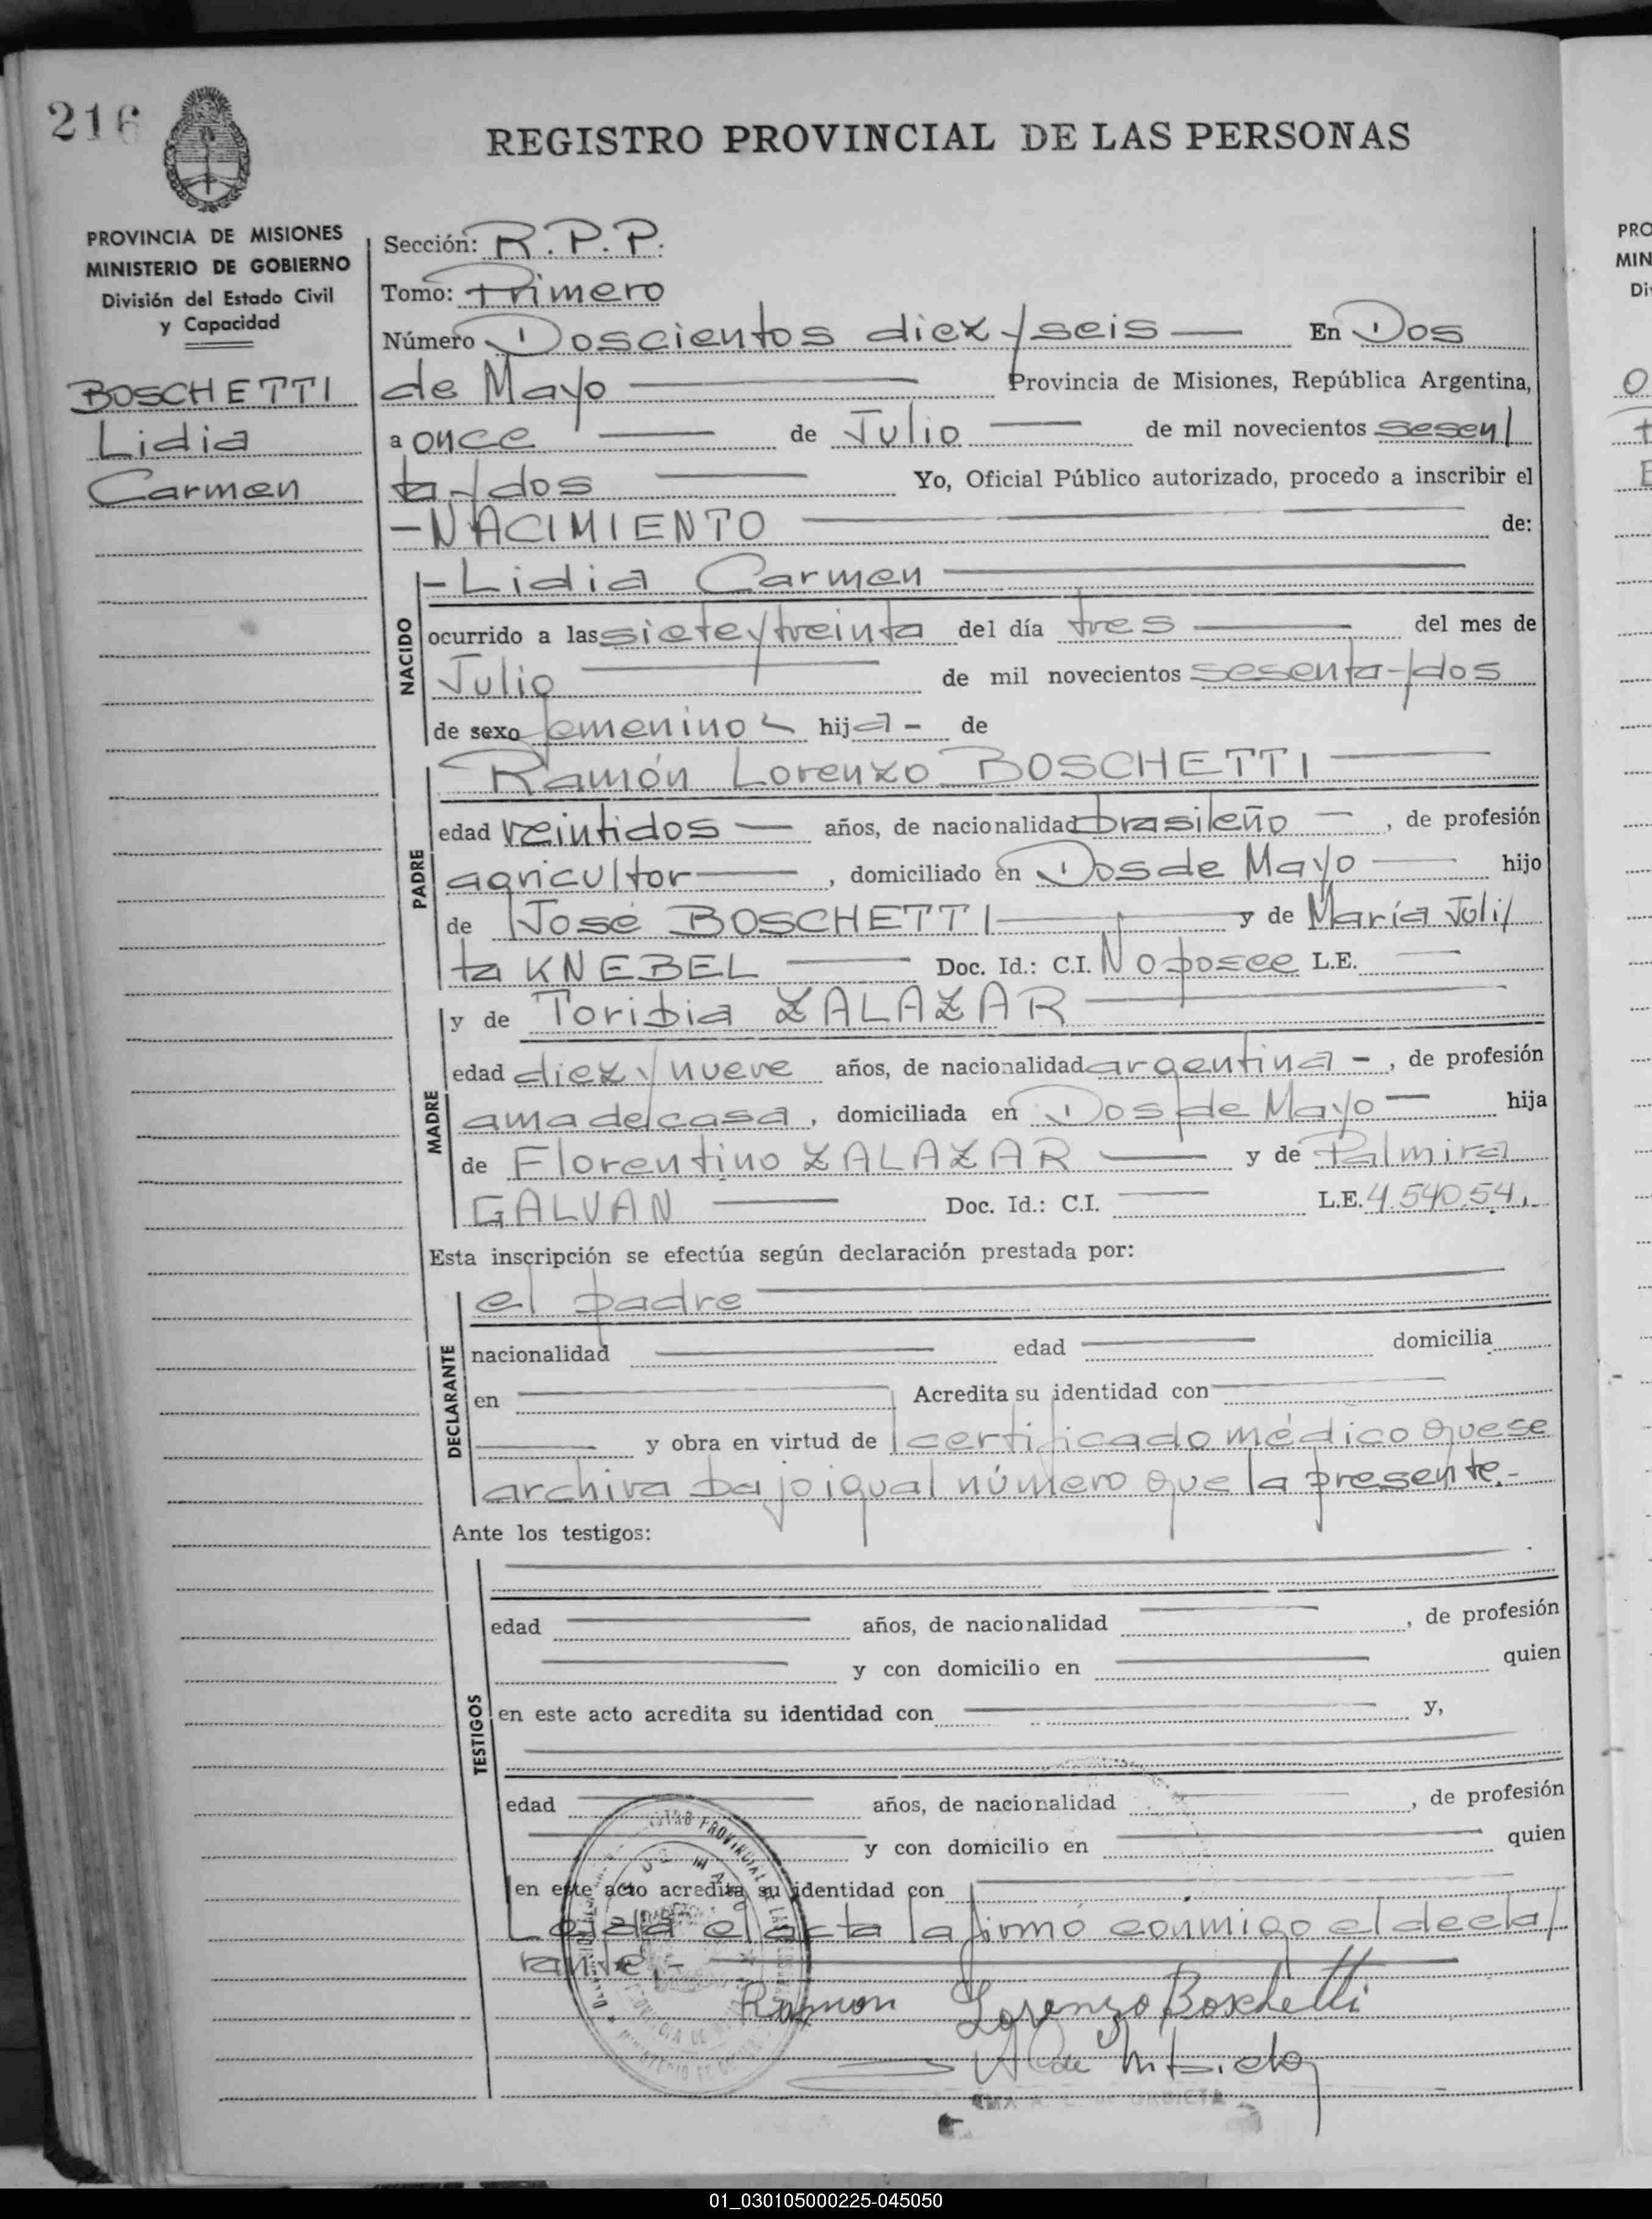 216
REGISTRO PROVINCIAL DE LAS PERSONAS
PROVINCIA DE MISIONES
MINISTERIO DE GOBIERNO
División del Estado Civil
y Capacidad
BOSCHETTI
Lidia
Carmen
Sección: R.P.P.
Tomo: Primero
Número Doscientos diez y seis — En Dos
de Mayo — Provincia de Misiones, República Argentina,
a once — de Julio — de mil novecientos sesen/
ta y dos — Yo, Oficial Público autorizado, procedo a inscribir el
-NACIMIENTO — de:
NACIDO
-Lidia Carmen —
ocurrido a las siete y treinta del día tres — del mes de
Julio — de mil novecientos sesenta y dos
de sexo femenino - hija - de
PADRE
Ramón Lorenzo BOSCHETTI —
edad veintidos — años, de nacionalidad brasileño —, de profesión
agricultor —, domiciliado en Dos de Mayo — hijo
de José BOSCHETTI — y de María Juli/
ta KNEBEL — Doc. Id.: C.I. No posee L.E. —
MADRE
y de Toribia ZALAZAR —
edad diez y nueve años, de nacionalidad argentina -, de profesión
ama de casa, domiciliada en Dos de Mayo — hija
de Florentino ZALAZAR — y de Palmira
GALVAN — Doc. Id.: C.I. — L.E. 4.540.541.
Esta inscripción se efectúa según declaración prestada por:
DECLARANTE
el padre —
nacionalidad — edad — domicilia
en — Acredita su identidad con —
— y obra en virtud de certificado médico que se
archiva bajo igual número que la presente.-
Ante los testigos:
TESTIGOS
edad — años, de nacionalidad —, de profesión
— y con domicilio en — quien
en este acto acredita su identidad con — y,
edad — años, de nacionalidad —, de profesión
— y con domicilio en — quien
en este acto acredita su identidad con —
Leida el acta la firmó conmigo el decla/
rante.-
Ramon Lorenzo Boschetti
PRO
MIN
01_030105000225-045050